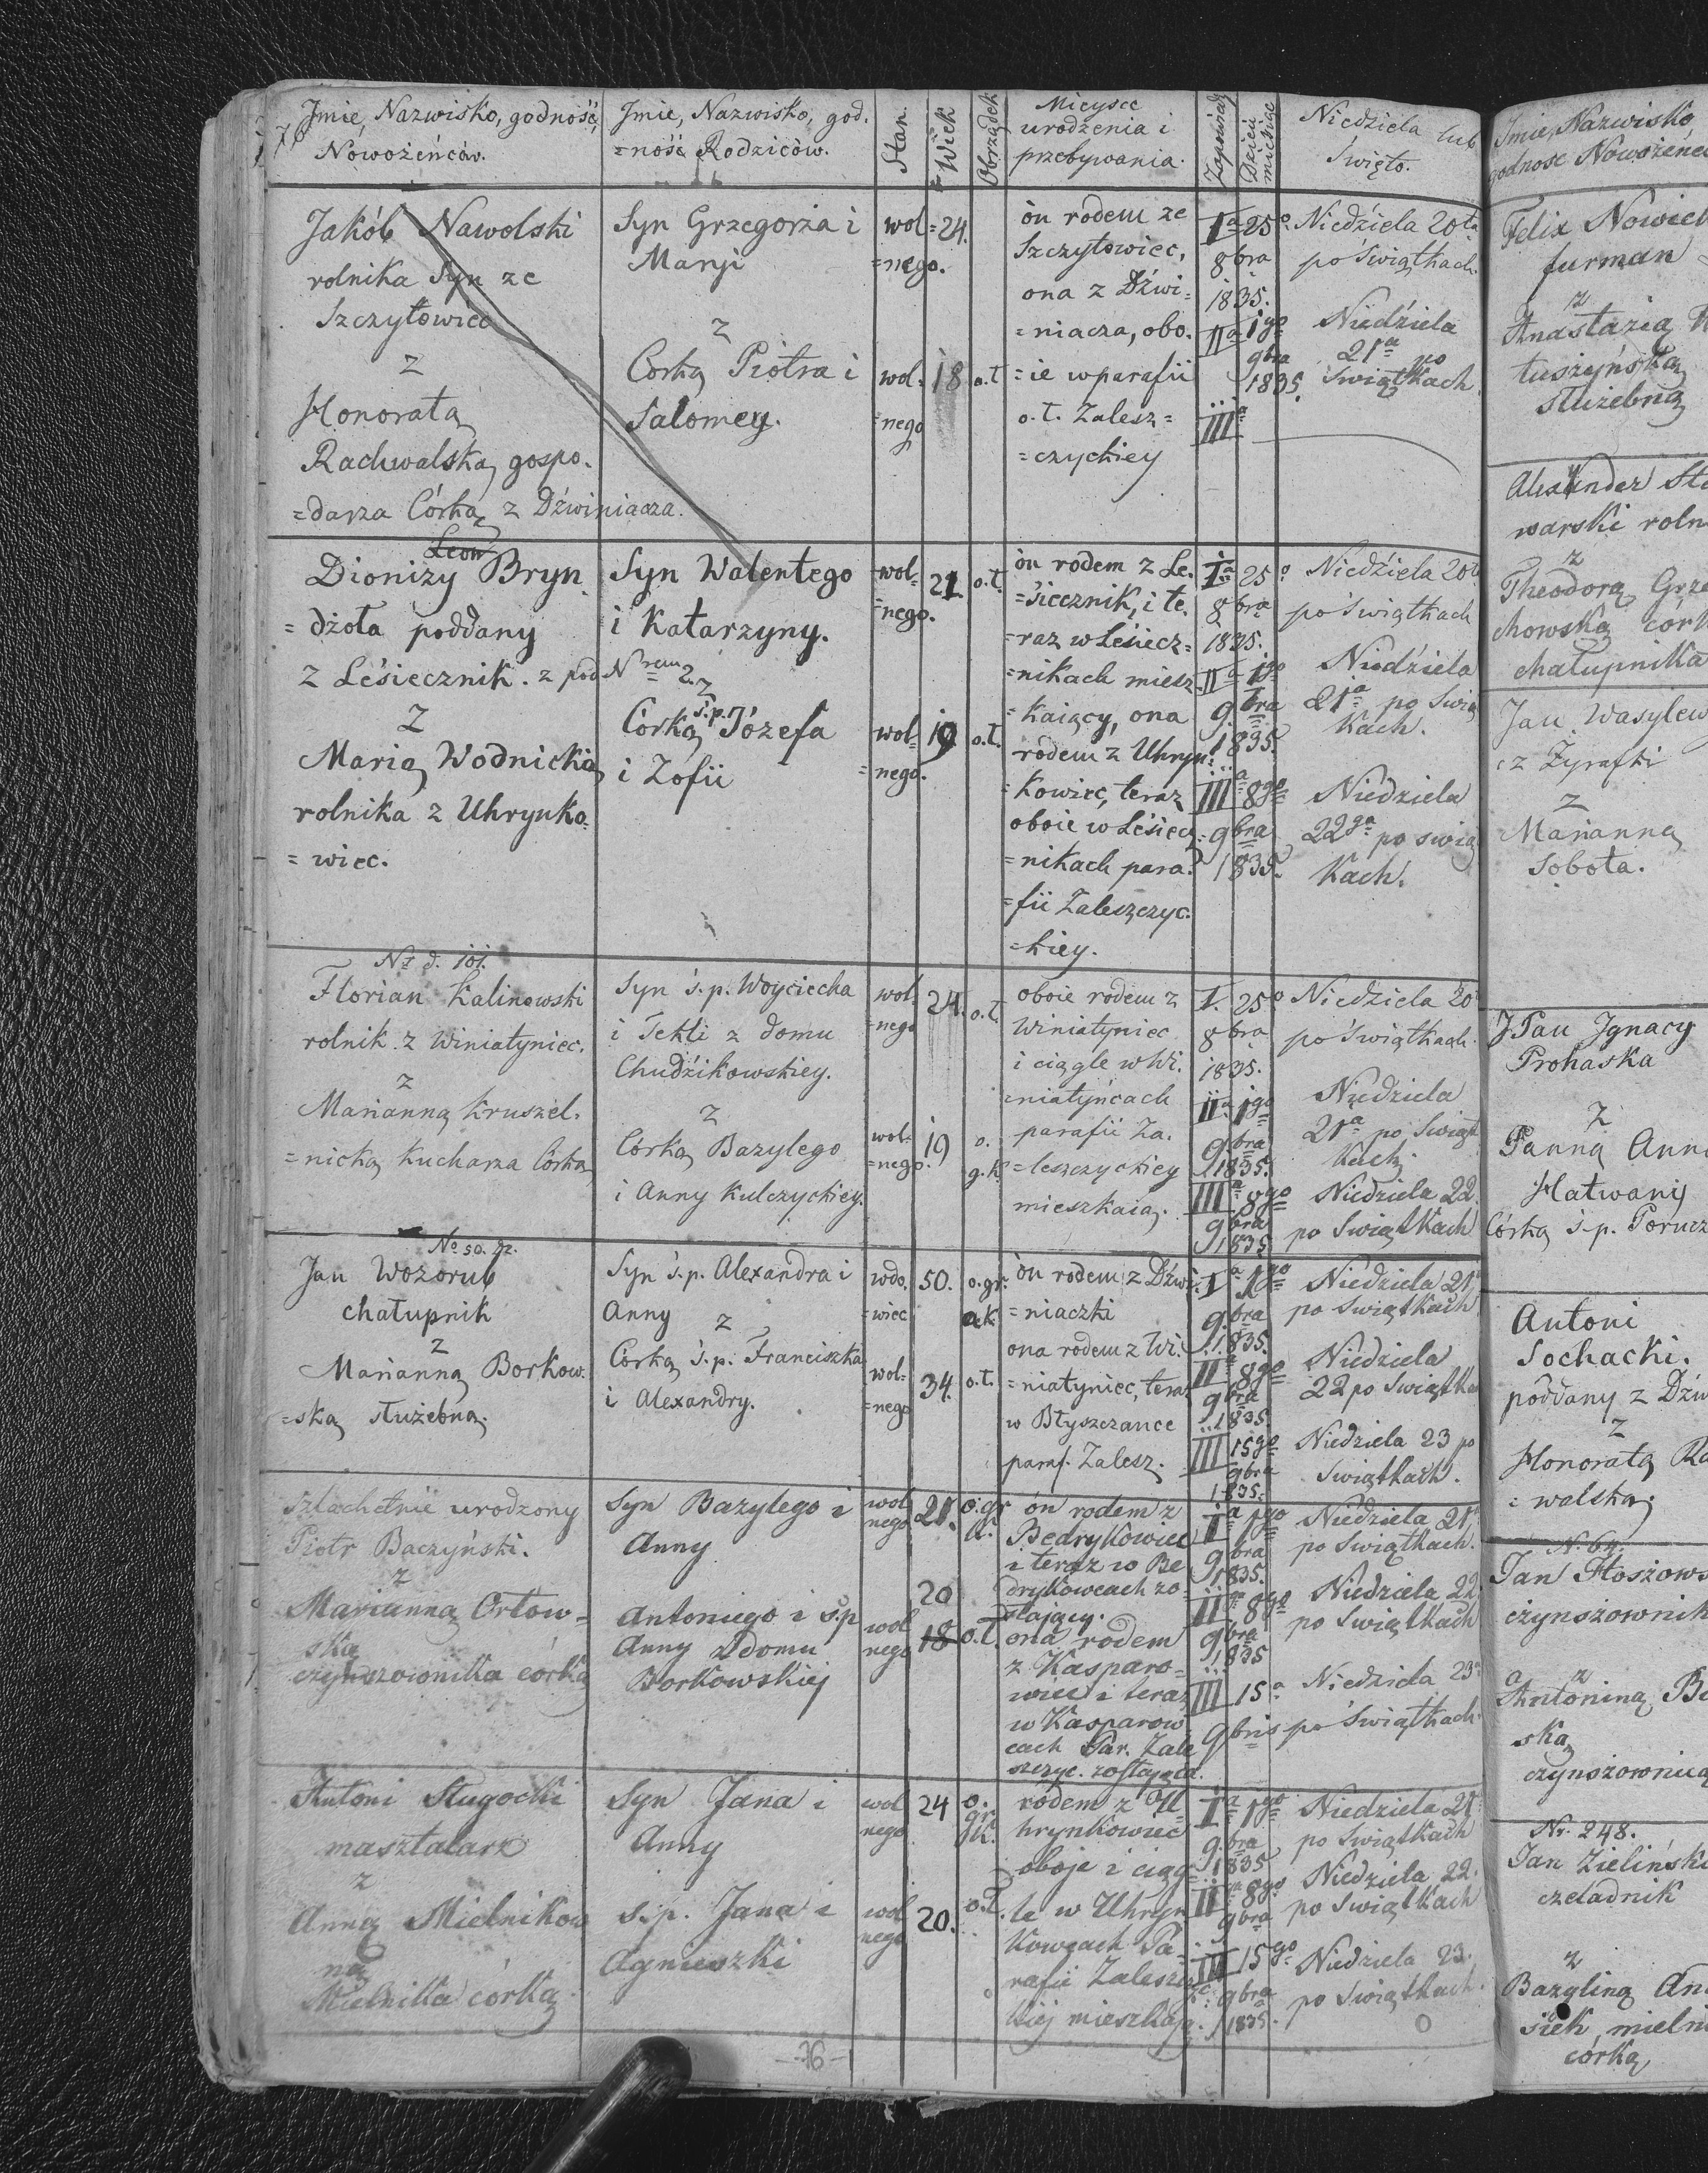 76
Jmie, Nazwisko, godność,
Nowożeńców.
Jmie, Nazwisko, god.
=ność Rodziców.
Stan.
Wiek
Obrządek
Mieysce
urodzenia i
przebywania.
Zapowiedź
Dzień
miesiąc
Niedziela lub
Swięto.
Jakób Nawolski
rolnika Syn ze
Szczytowiec
z
Honoratą
Rachwalską, gospo.
=darza Córką z Dźwiniacza.
Syn Grzegorza i
Maryi
z
Corką Piotra i
Salomey.
wol=
=nego.
24.
wol=
=nego
18
o.t
òn rodem ze
Szczytowiec,
ona z Dźwi=
=niacza, obo.
=ie w parafii
o.t. Zalesz=
=czyckiey
Ia 25o
8bra
1835.
IIa 1go
9bra
1835.
IIIa
Niedziela 20ta
po Swiątkach.
Niedziela
21a po
Swiątkach
Leon
Dionizy Bryn
=dżota poddany
z Leśiecznik. z pod Nrem 2.
z
Marią Wodnicką
rolnika z Uhrynko=
=wiec.
Syn Walentego
i Katarzyny.
z
Córką ś.p. Józefa
i Zofii
wol=
=nego.
21
o.t.
wol=
=nego.
19
o.t.
òn rodem z Le.
=śiecznik, i te.
=raz w Leśiecz=
=nikach miesz
=kaiący, ona
rodem z Uhryn=
=kowiec, teraz
oboie w Leśiecz=
=nikach para=
=fii Zaleszczyc.
=kiey.
Ia 25o
8bra
1835.
IIa 1go
9bra
1835.
IIIa 8go
9bra
1835.
Niedźiela 20t
po Swiątkach
Niedźiela
21a po Swią
kach.
Niedziela
22ga po swią
kach.
Nr d. 101.
Florian Kalinowski
rolnik z Winiatyniec.
z
Marianną Kruszel.
=nicką Kucharza Córką
Syn ś.p. Woyciecha
i Tekli z domu
Chudźikowskiey.
z
Córką Bazylego
i Anny Kulczyckiey.
wol=
=nego
24.
o.t.
wol=
=nego.
19
o.
g.k.
oboie rodem z
Winiatyniec
i ciągle w Wi.
=niatyńcach
parafii Za.
=leszczyckiey
mieszkaią.
I. 25o
8bra
1835.
IIa 1go
9bra
1835.
IIIa 8go
9bra
1835
Niedziela 20
po Swiątkach.
Niedziela
21a po Swiąt
kach.
Niedziela 22.
po Swiątkach
No 50.
Jan Wozorub
chałupnik
z
Marianną Borkow.
=ską służebną.
Syn ś.p. Alexandra i
Anny z
Córką ś.p. Franciszka
i Alexandry.
wdo.
=wiec
50.
o.gr.
a.k.
wol=
=nego
34.
o.t.
òn rodem z Dźwi.
=niaczki
ona rodem z Wi.
=niatyniec, teraz
w Błyszczance
paraf. Zalesz.
Ia 1go
9bra
1835.
IIa 8go
9bra
1835.
III 15go
9bra
1835.
Niedziela 21a
po Swiątkach
Niedziela
22 po Swiątka
Niedziela 23 po
Swiątkach.
Szlachetnie urodzony
Piotr Baczyński.
z
Marianną Orłow=
ską
czynszownika córką
Syn Bazylego i
Anny
Antoniego i ś.p
Anny z domu
Borkowskiej
wol
nego
21.
o.gr
k.
20
wol
nego
18
o.t.
ón rodem z
Bedrykowiec
i teraz w Be
drykowcach zo=
stający.
ona rodem
z Kasparo=
wiec i teraz
w Kasparow
cach Par. Zale
szczyc. zostająca.
Ia 1go
9bra
1835.
IIa 8go
9bra
1835
III 15a
9bris
Niedziela 21a
po Swiątkach.
Niedziela 22
po Swiątkach
Niedziela 23a
po Swiątkach.
Antoni Sługocki
masztalarz
z
Anną Mielnikow
ną
Mielnika córką
Syn Jana i
Anny
ś.p. Jana i
Agnieszki
wol
nego
24
o.
gr.
k.
wol
nego
20.
o.t.
rodem z U=
hrynkowiec
oboje i ciąg=
le w Uhryn
kowcach Pa=
rafii Zaleszczyc
kiej mieszkają.
Ia 1go
9bra
1835
IIa 8go
9bra
III 15go
9bra
1835.
Niedziela 21
po Swiątkach
Niedziela 22.
po Swiątkach
Niedziela 23.
po Swiątkach.
-76-
Jmie, Nazwisko,
godnosc Nowożeńc
Felix Nowick
furman
z
Anastazią
tuszyńską
służebną
Alexander Sto
warski roln
z
Theodorą Grze
chowską córk
chałupnika
Jan Wasylew
z Żyrafki
z
Marianną
Sobota.
JPan Jgnacy
Prohaska
z
Panną Ann
Hatwanij
Córką ś.p. Porucz
Antoni
Sochacki.
poddany z Dźw
z
Honoratą Ra
=walską
N. 64.
Jan Hoszows
czynszownik
z
Antoniną B
ską
czynszownica
Nr. 248.
Jan Zieliński
czeladnik
z
Bazyliną An
siek, mieln
córką